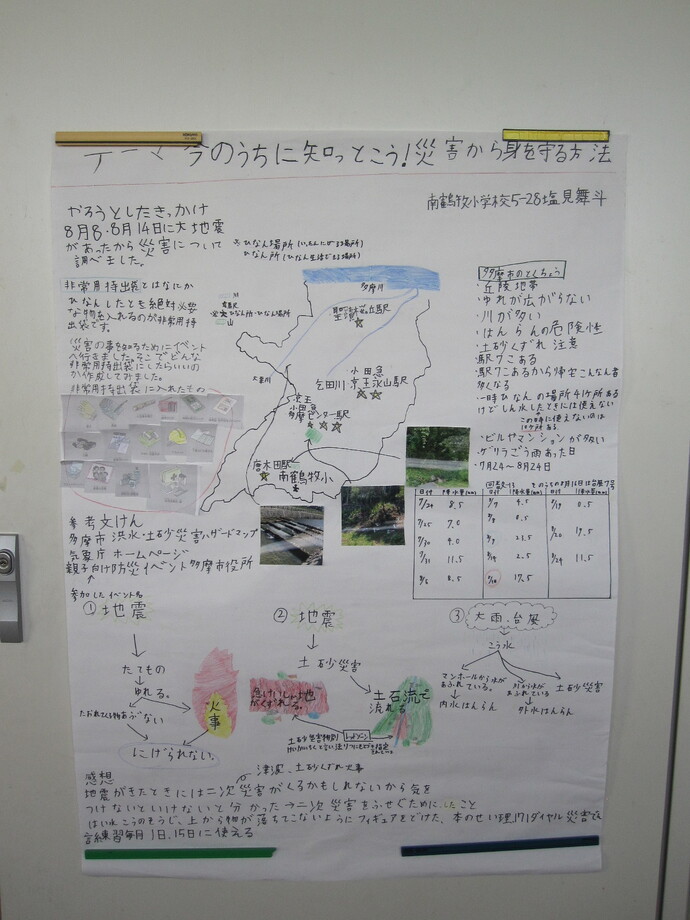 テーマ 今のうちに知っとこう!災害から身を守る方法
南鶴牧小学校5-28塩見舞斗
やろうとしたきっかけ
8月8・8月14日に大地震
があったから災害について
調べました。
ひなん場所
ひなん所
非常用持出袋とはなにか
ひなんしたとき絶対必要
な物を入れるのが非常用持
出袋です。
災害の事を知るためにイベント
へ行きました。そこでどんな
非常用持出袋にしたらいいの
か作成してみました。
非常用持出袋に入れたもの
多摩川
聖蹟桜ヶ丘駅
大栗川
乞田川
小田急
京王永山駅
京王
小田急
多摩センター駅
唐木田駅
南鶴牧小
多摩市のとくちょう
・丘陵地帯
・ゆれが広がらない
・川が多い
・はんらんの危険性
・土砂くずれ 注意
・駅7こある
・駅7こあるから帰宅こんなん者
多くなる
・一時ひなんの場所41ヶ所ある
けどしん水したときには使えない
・ビルやマンションが多い
・ゲリラごう雨あった日
・7月24~8月24日
日付 降水量(mm) 日付 降水量(mm) 日付 降水量(mm)
7/24 8.5
7/25 7.0
7/30 4.0
7/31 11.5
参考文けん
多摩市 洪水・土砂災害ハザードマップ
気象庁 ホームページ
親子向け防災イベント 多摩市役所
参加したイベント名
① 地震
たてもの
ゆれる。
たおれてくる物あぶない
火事
にげられない。
② 地震
土砂災害
急けいしゃ地
がくずれる。
土石流で
流れる
レッドゾーン
③ 大雨、台風
こう水
マンホールから水が
あふれている。
内水はんらん
川から水が
あふれている
外水はんらん
土砂災害
津波、土砂くずれ、火事
感想
地震がきたときには二次災害がくるかもしれないから気を
つけないといけないと分かった→二次災害をふせぐためにしたこと
はい水こうのそうじ、上から物が落ちてこないようにフィギュアをどけた、本のせい理171ダイヤル災害伝
言練習毎月1日、15日に使える